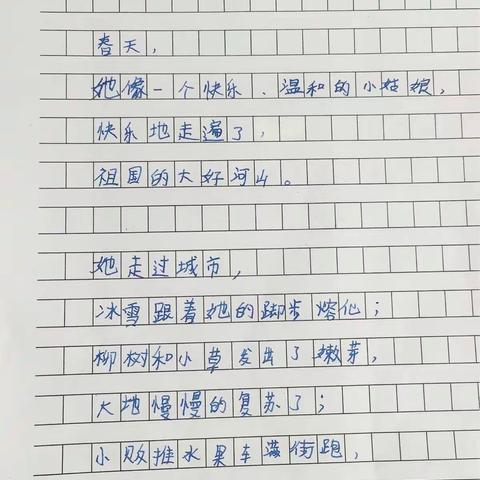 春天，
她像一个快乐、温和的小姑娘，
快乐地走遍了，
祖国的大好河山。
她走过城市，
冰雪跟着她的脚步熔化；
柳树和小草发出了嫩芽，
大地慢慢的复苏了；
小败推水果车满街跑，